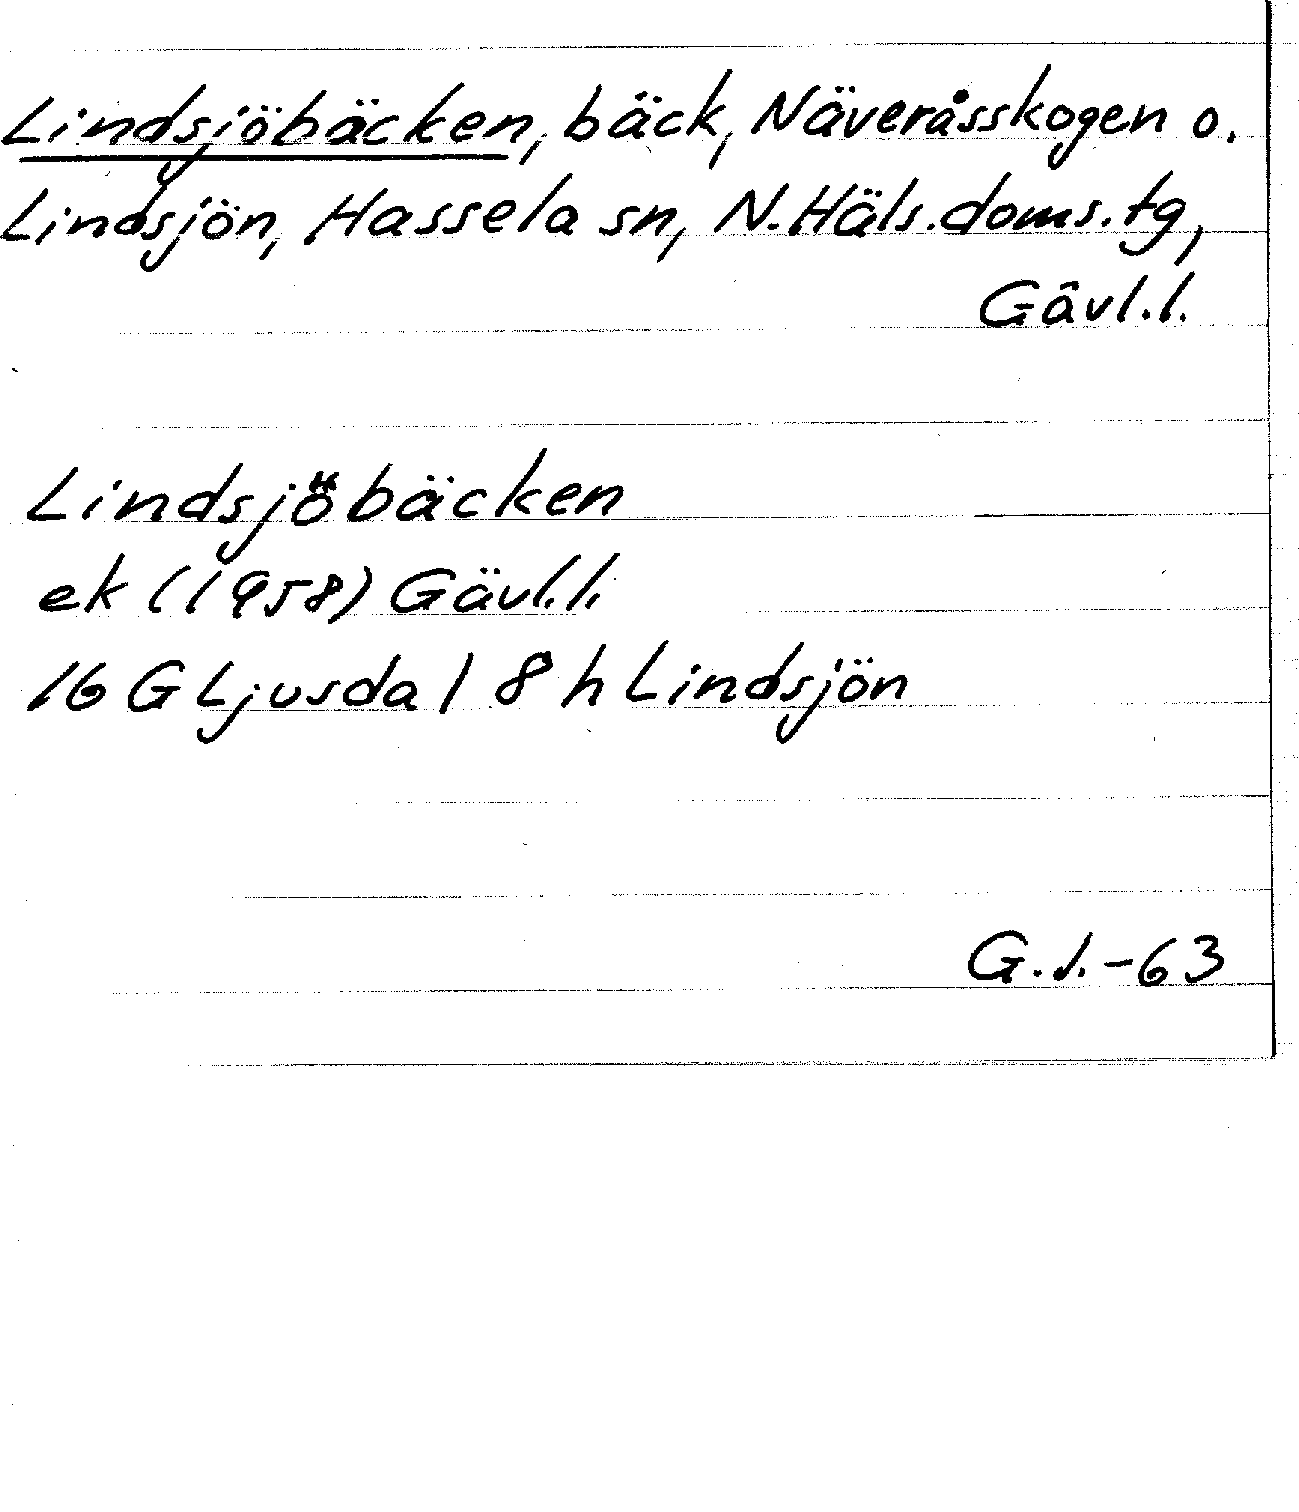 Lindsjöbäcken, bäck, Näveråsskogen o.
Lindsjön, Hassela sn, N.Häls.doms.tg,
Gävl.l.
Lindsjöbäcken
ek (1958) Gävl.l.
16 G Ljusdal 8 h Lindsjön
G.J.-63